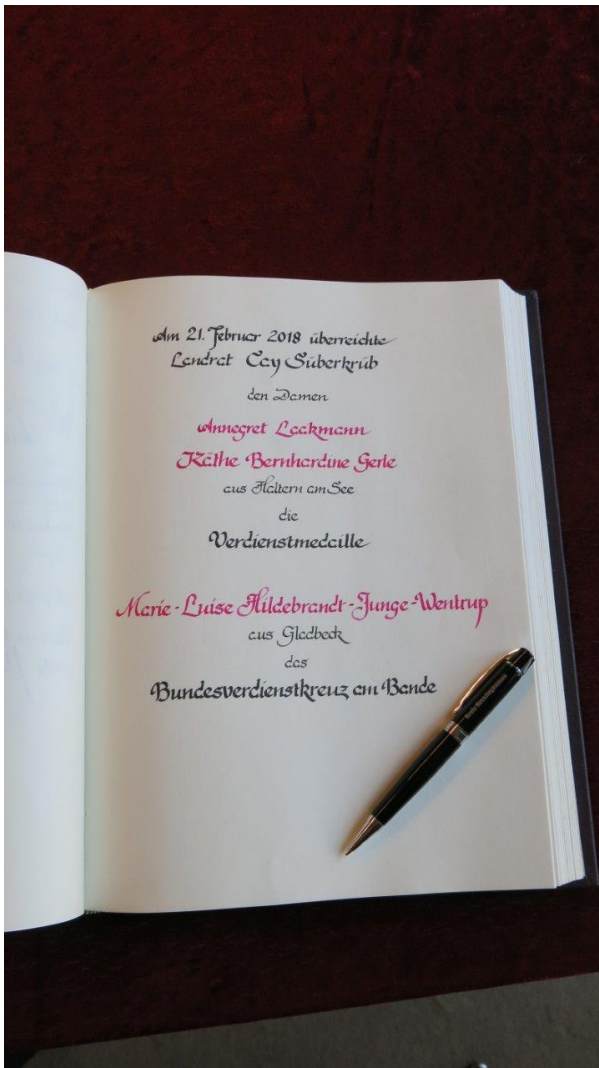 Am 21. Februar 2018 überreichte
Landrat Cay Süberkrüb
den Damen
Annegret Laakmann
Käthe Bernhardine Gerle
aus Haltern am See
die
Verdienstmedaille
Marie-Luise Hildebrandt-Junge-Wentrup
aus Gladbeck
das
Bundesverdienstkreuz am Bande